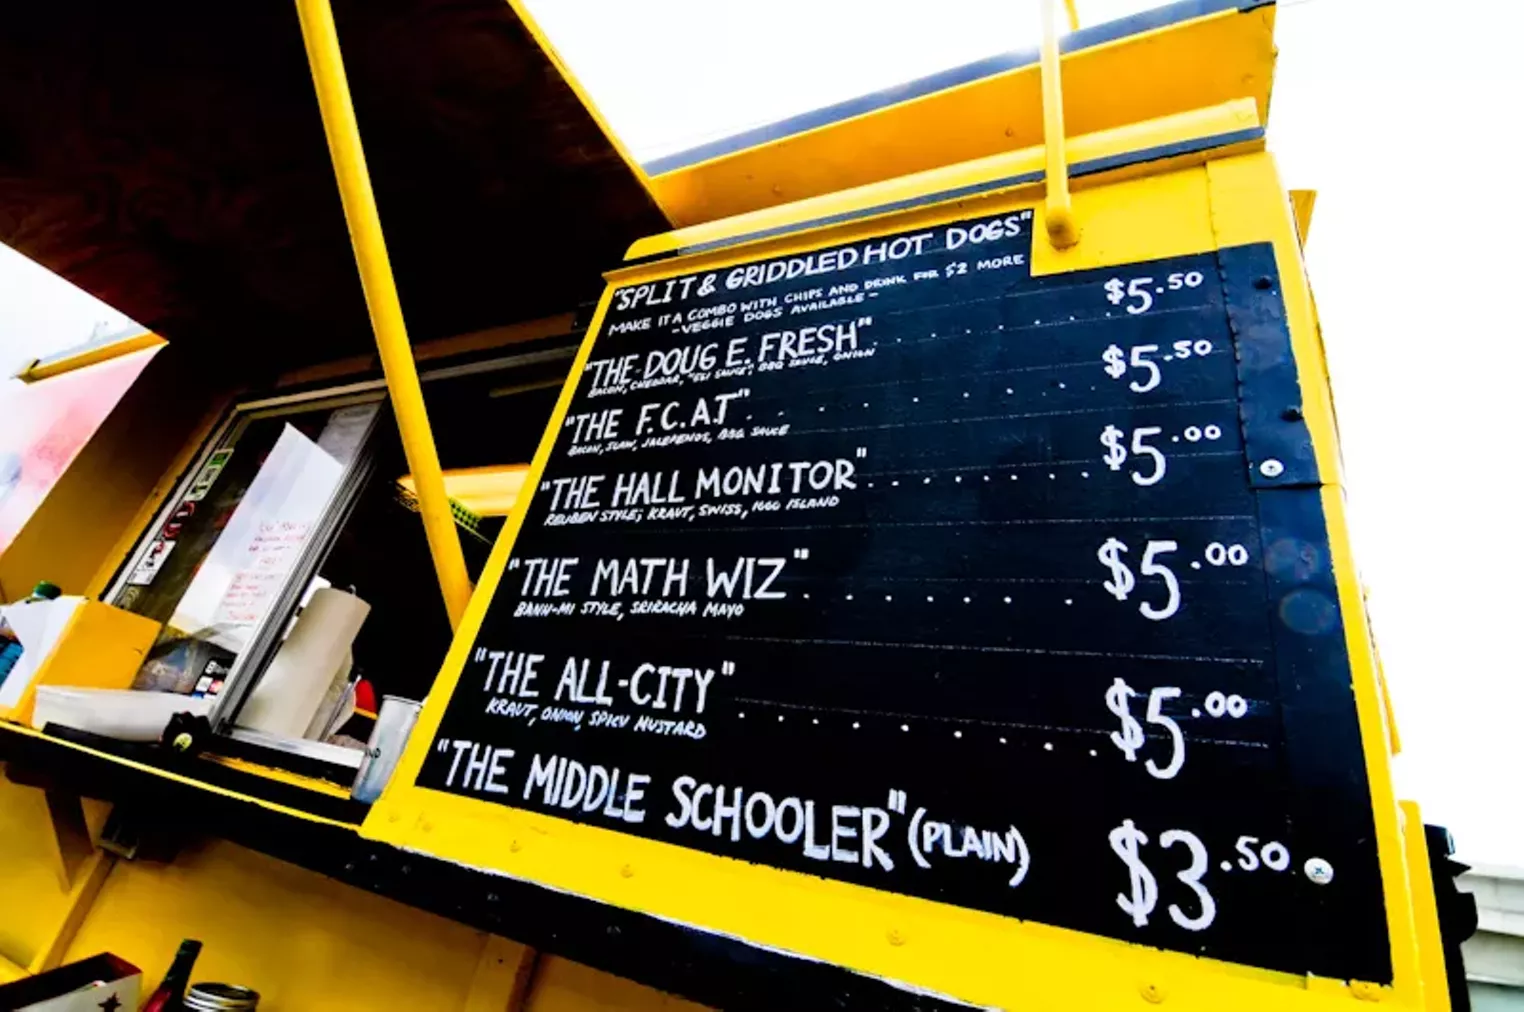 "SPLIT & GRIDDLED HOT DOGS"
MAKE IT A COMBO WITH CHIPS AND DRINK FOR $2 MORE
-VEGGIE DOGS AVAILABLE-
"THE DOUG E. FRESH" . . . . . . . $5.50
BACON, CHEDDAR, "ELI SAUCE", BBQ SAUCE, ONION
"THE F.C.A.T" . . . . . . . . . $5.50
BACON, SLAW, JALEPENOS, BBQ SAUCE
"THE HALL MONITOR" . . . . . . . . $5.00
REUBEN STYLE; KRAUT, SWISS, 1000 ISLAND
"THE MATH WIZ" . . . . . . . . $5.00
BANH-MI STYLE, SRIRACHA MAYO
"THE ALL-CITY" . . . . . . . . . . $5.00
KRAUT, ONION, SPICY MUSTARD
"THE MIDDLE SCHOOLER" (PLAIN) $3.50